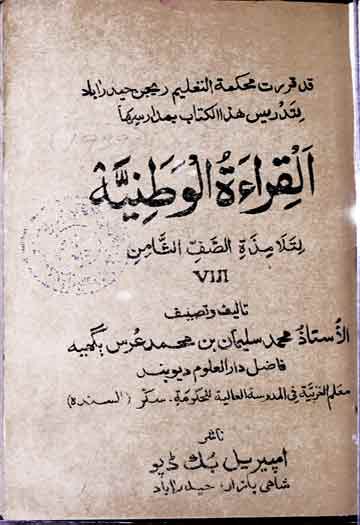 قد قررت محكمة التعليم ريجن حيدراباد
لتدريس هذا الكتاب بمدارسها
اَلْقِرَاءَةُ الْوَطَنِيَّة
لِتَلَامِذَةِ الصَّفِّ الثَّامِنِ
VIII
تاليف وتصنيف
الأُستاذُ محمد سليمان بن محمد عرس
فاضل دار العلوم ديوبند
معلم العربية في المدرسة العالية للحكومة، سكر (السنده)
ناشر
امپيريل بُك ڈپو
شاهي بازار، حيدراباد